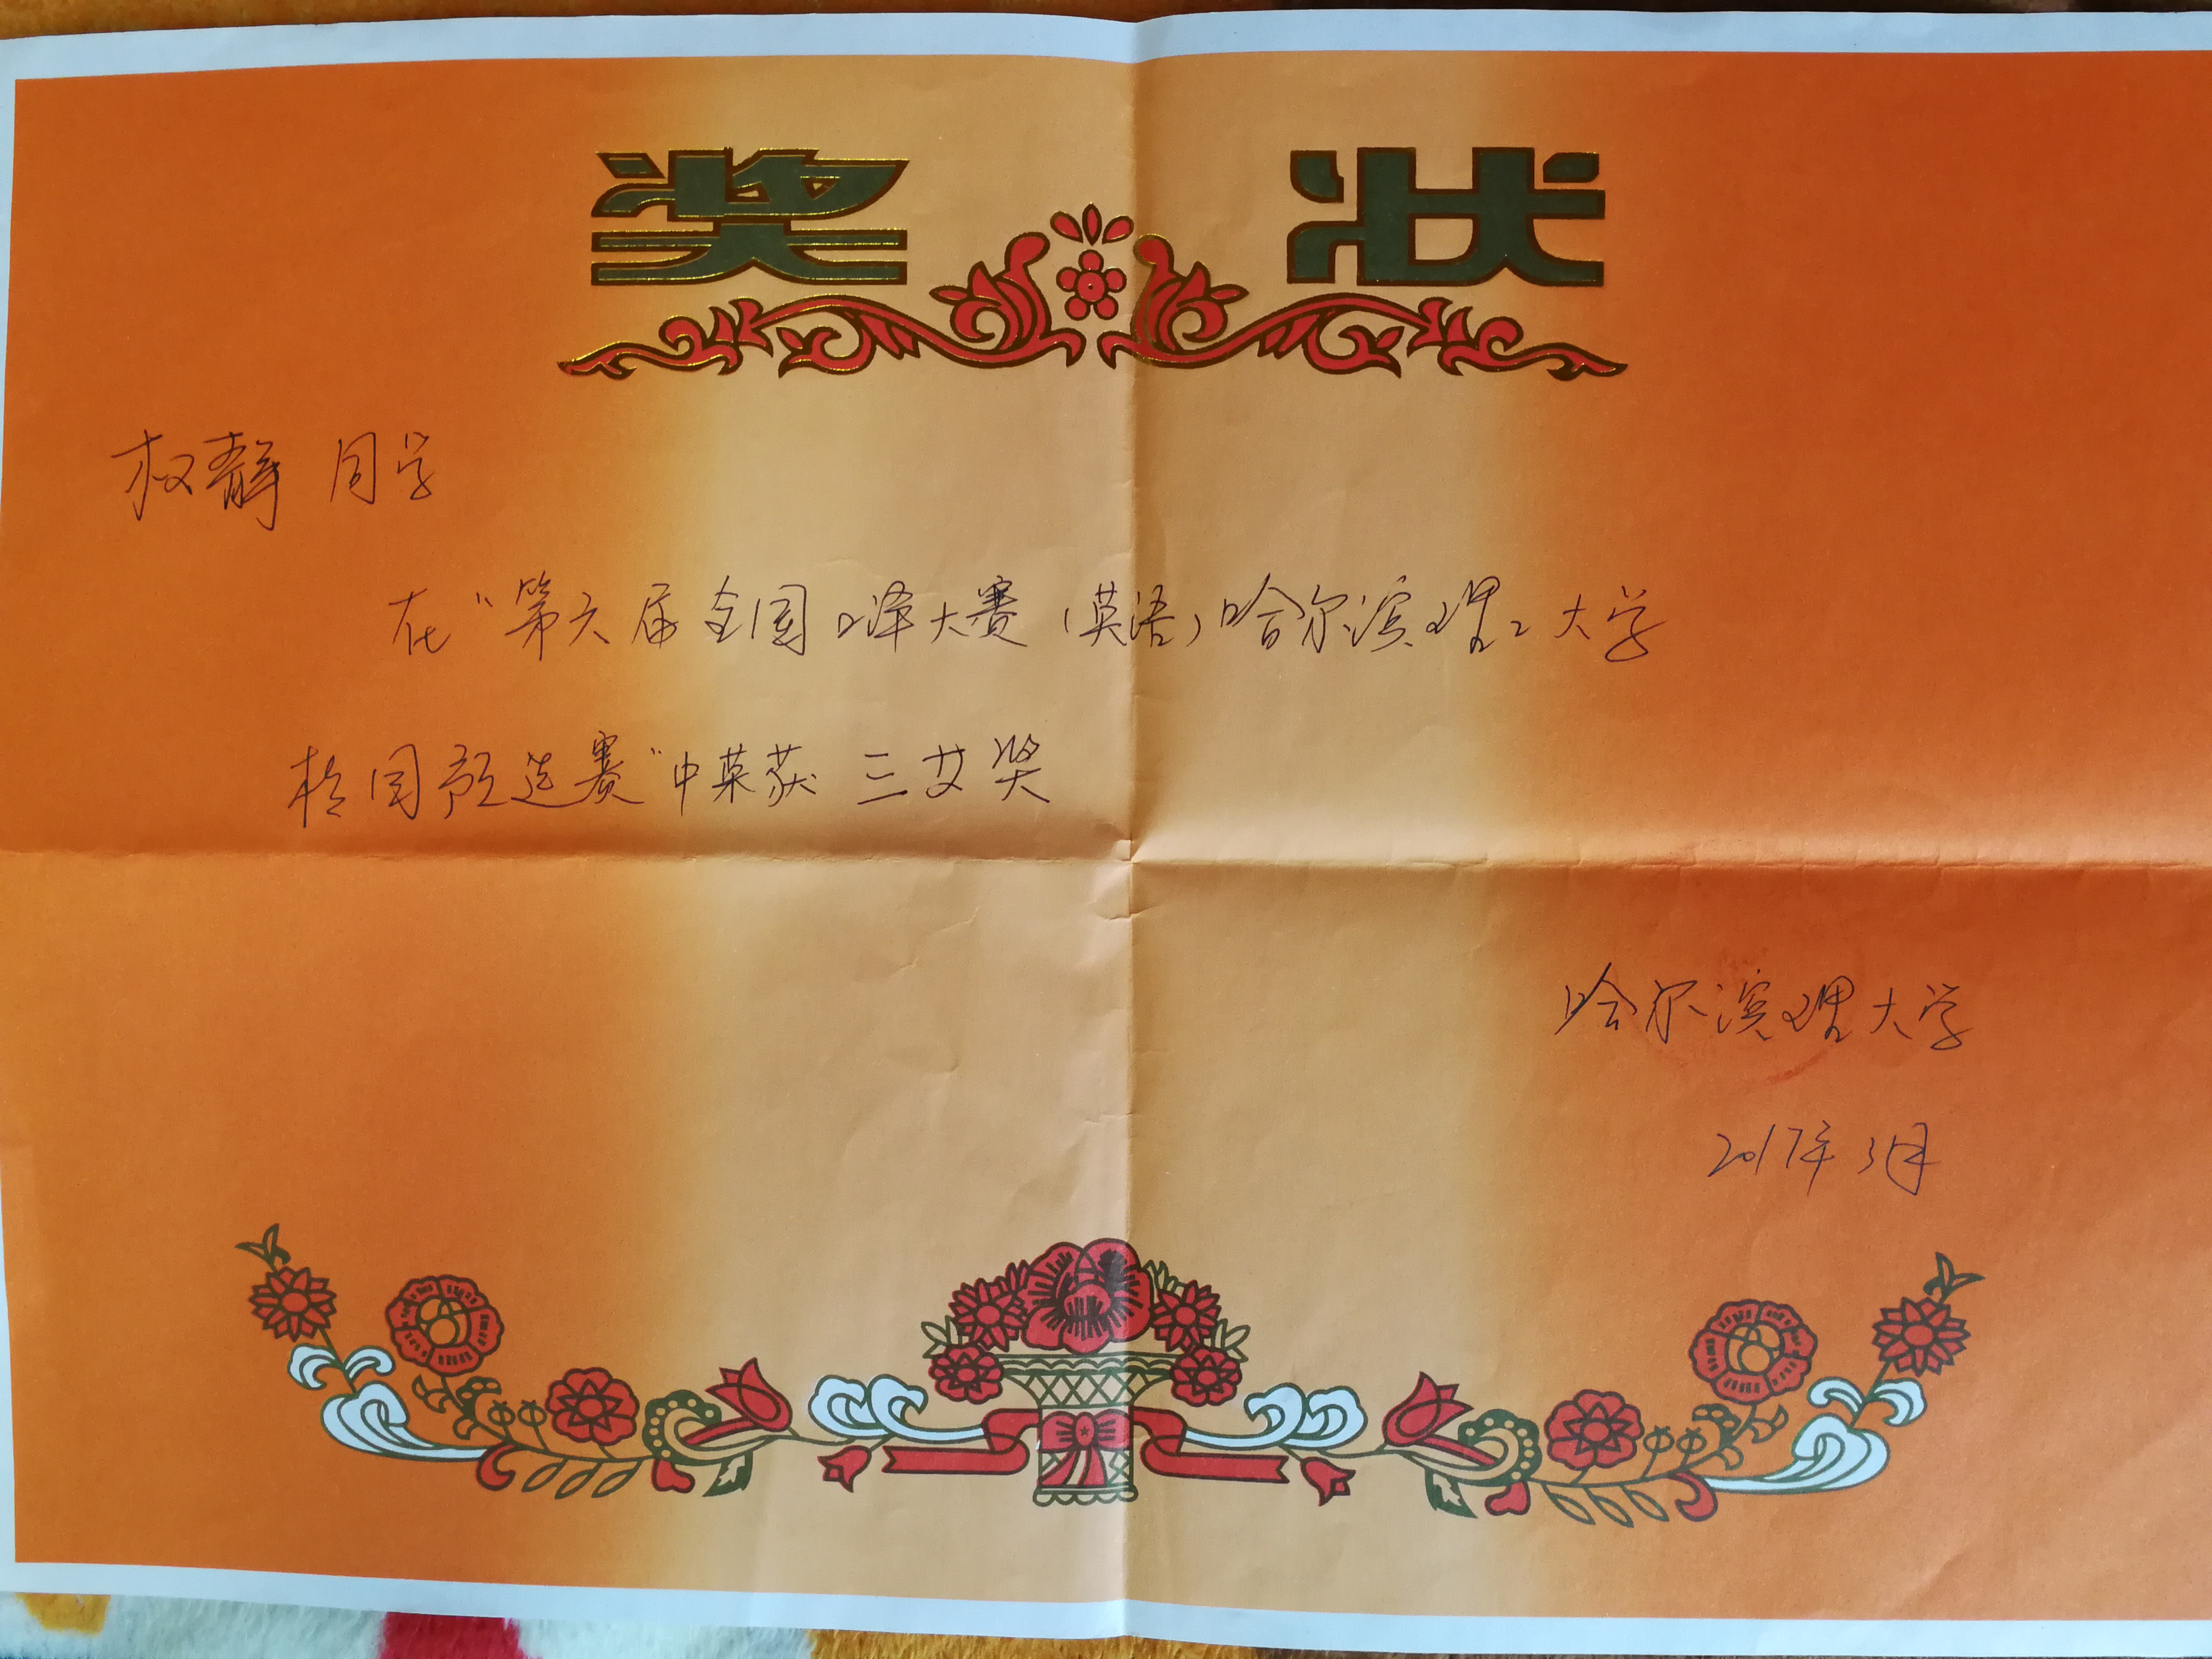 奖 状
权静 同学
在“第六届全国口译大赛（英语）哈尔滨理工大学
校园预选赛”中荣获 三等奖
哈尔滨理工大学
2017年3月